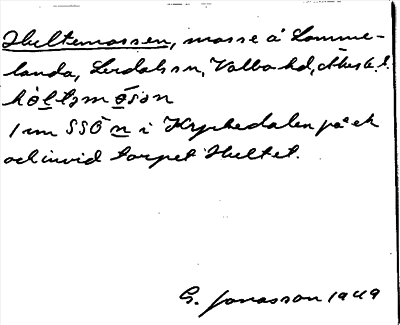 Hultemossen, mosse å Lomme-
landa, Lerdals sn, Valbo hd, Älvsb. l.
hòltəmósən
1 m SSÖ n i Kryckedalen på ek
och invid torpet Hultet.
G. Jonasson 1949